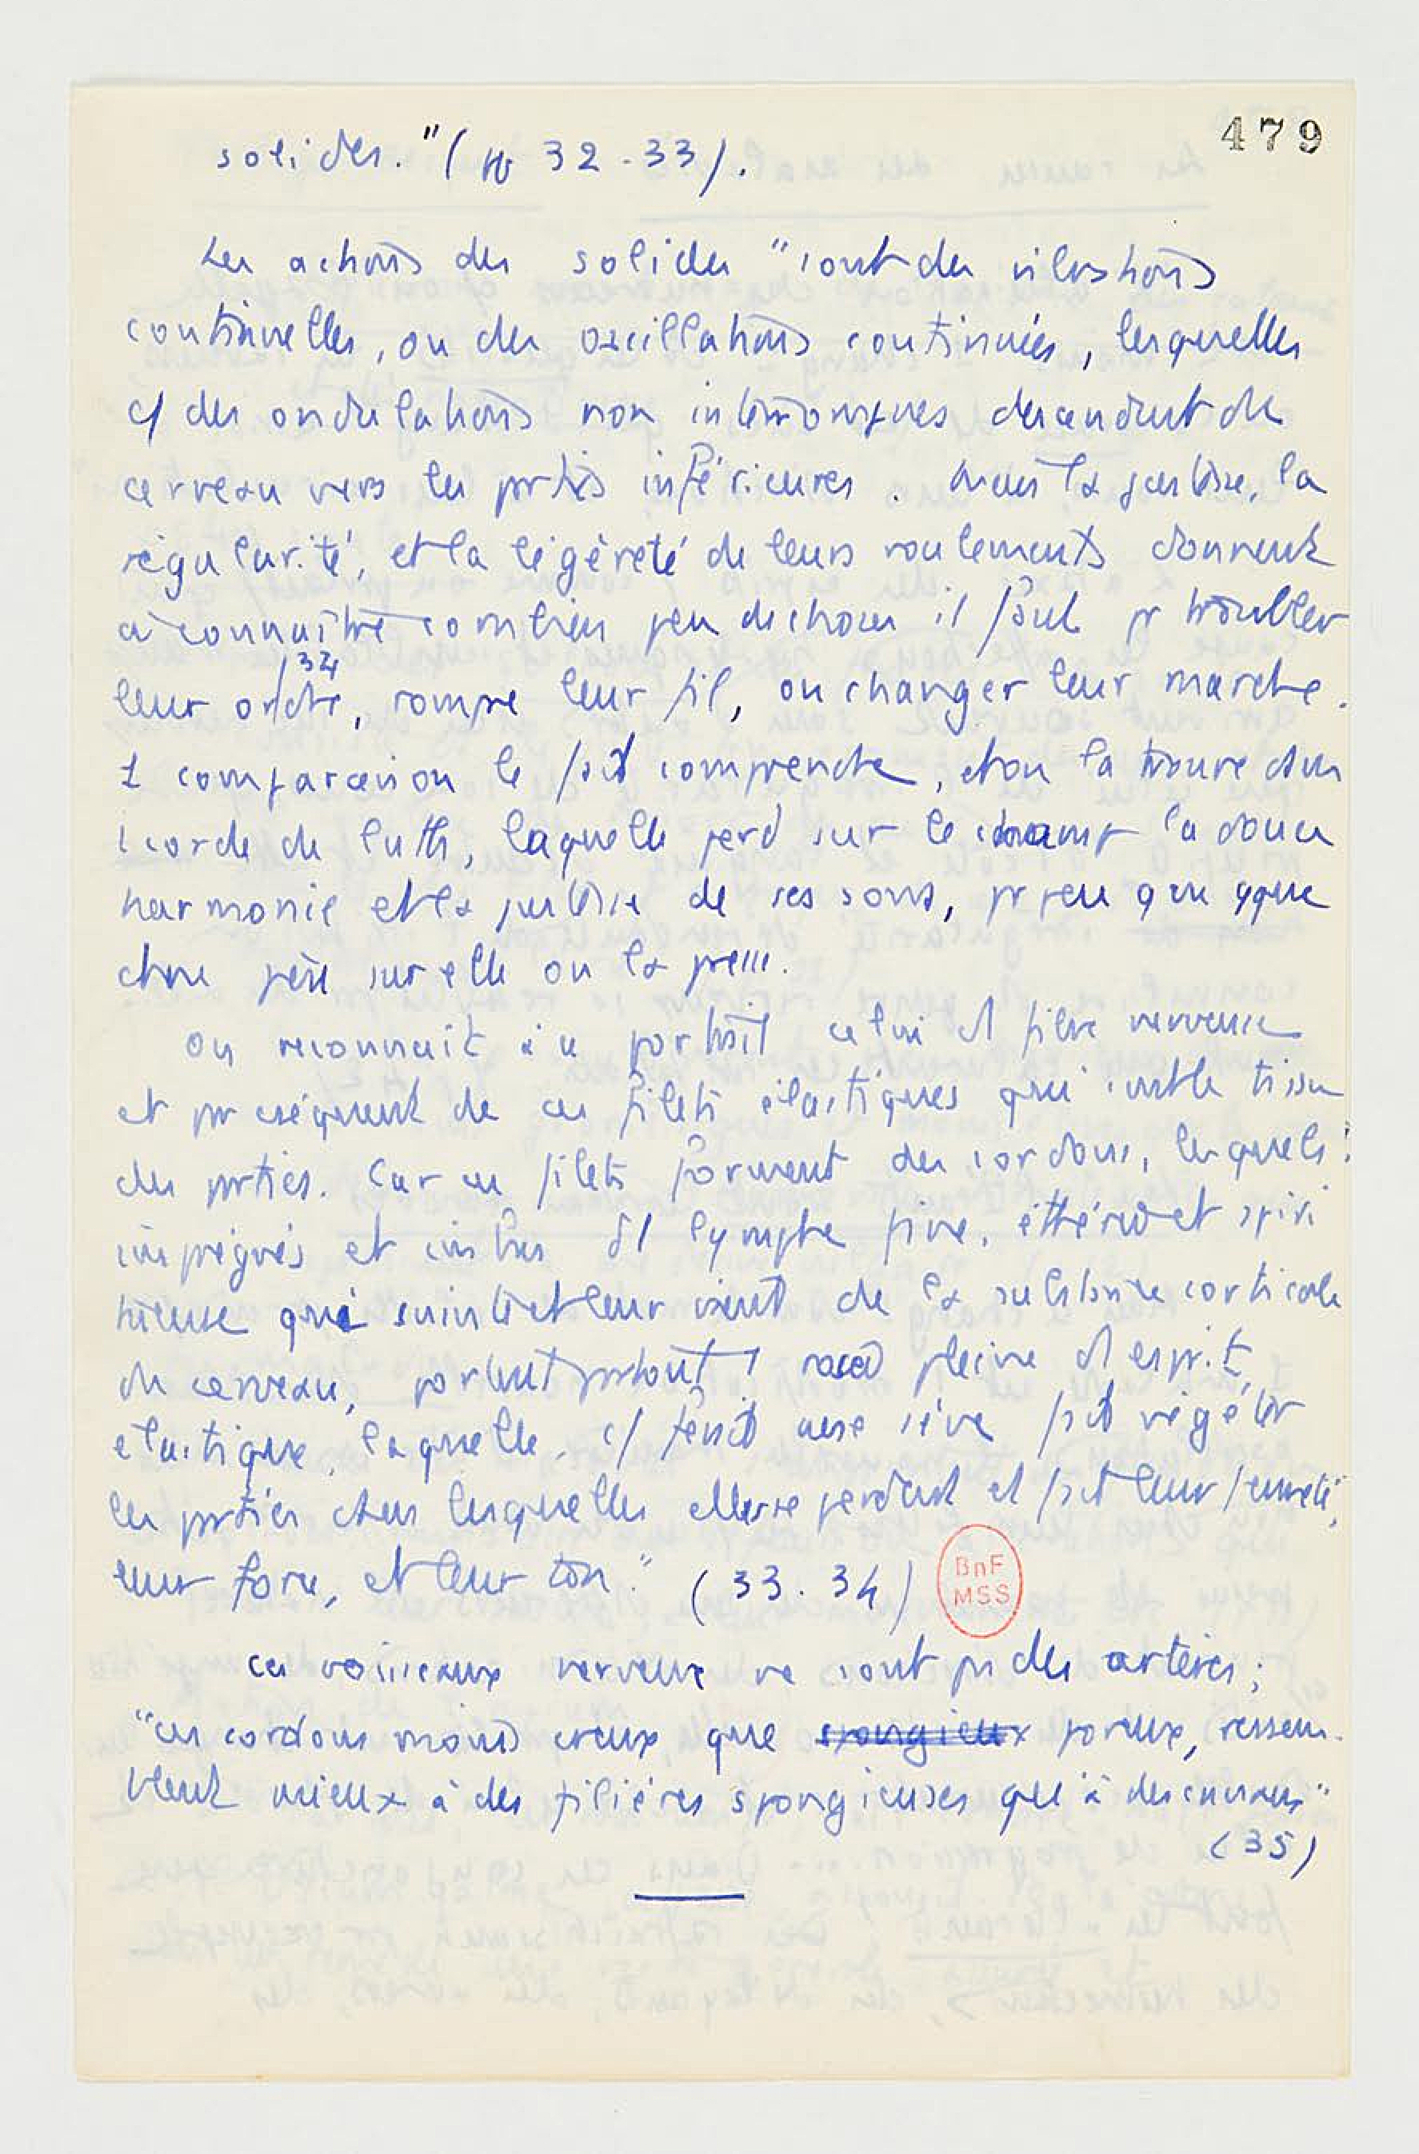 479
solides." (pp 32-33).
Les actions des solides "sont des vibrations
continuelles, ou des oscillations continuées, lesquelles
c/ des ondulations non interrompues descendent du
cerveau vers les parties inférieures. Mais la justesse, la
régularité, et la légèreté de leurs roulements donnent
à connaître combien peu de choses il faut pr troubler
leur or/dre, rompre leur fil, ou changer leur marche.
34
1 comparaison le fait comprendre, et on la trouve dans
1 corde de luth, laquelle perd sur le champ la douce
harmonie et la justesse de ses sons, pr peu que qque
chose pèse sur elle ou la presse.
On reconnait à ce portrait celui d1 fibre nerveuse
et pr cséquent de ces filets élastiques qui sont le tissu
des prties. Car ces filets forment des cordons, lesquels
imprégnés et imbus d1 lymphe fine, éthérée et spiri
tueuse qui suinte et leur vient de la substance corticale
du cerveau, portent prtout 1 rosée pleine d1 esprit
élastique, laquelle c/ ferait une sève fait végéter
les prties dans lesquelles elle se perd et fait leur fermeté,
leur force, et leur ton." (33.34)
BnF
MSS
Ces vaisseaux nerveux ne sont ps des artères;
"ces cordons moins creux que spongieux poreux, ressem-
blent mieux à des filières spongieuses qu'à des canaux"
(35)